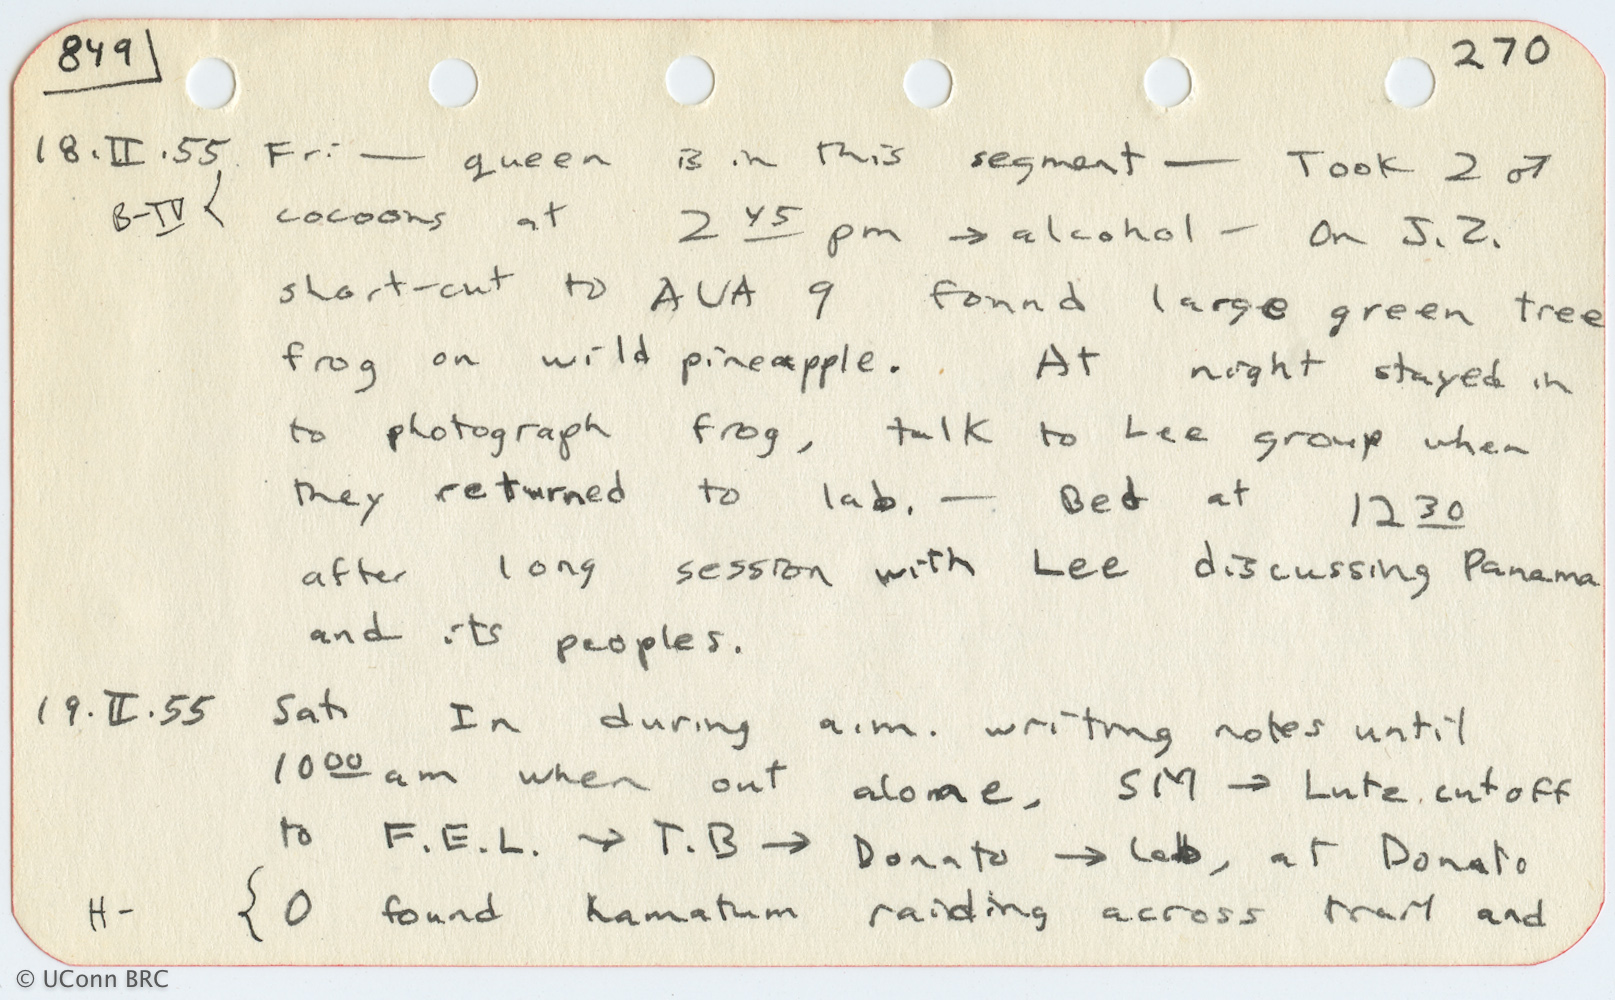 849 270
18.II.55 Fri — queen is in this segment — Took 2 ♂
B-IV { cocoons at 2 45 pm → alcohol — On S.Z.
short-cut to AVA 9 found large green tree
frog on wild pineapple. At night stayed in
to photograph frog, talk to Lee group when
they returned to lab. — Bed at 12 30
after long session with Lee discussing Panama
and its peoples.
19.II.55 Sat In during a.m. writing notes until
10 00 am when out alone, SM → Lutz cutoff
to F.E.L. → T.B → Donato → Lab, at Donato
H- { 0 found hamatum raiding across trail and
© UConn BRC